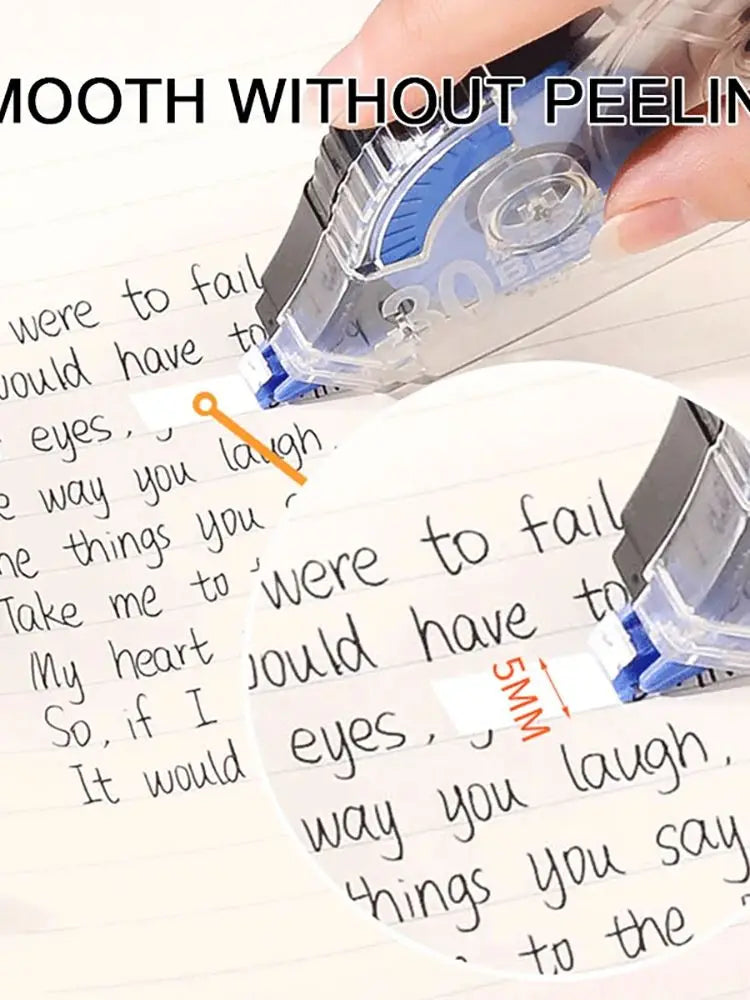 MOOTH WITHOUT PEELIN
were to fail
would have to
eyes,
way you laugh.
things you
Take me to
My heart
So, if I
It would
30
BEST
were to fail
would have to
5MM
eyes,
way you laugh,
things you say
to the